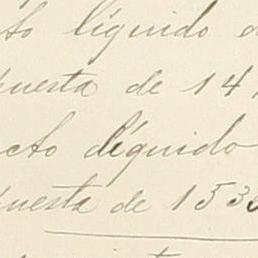 cto líquido d
puesta de 14,
ecto líquido
puesta de 153